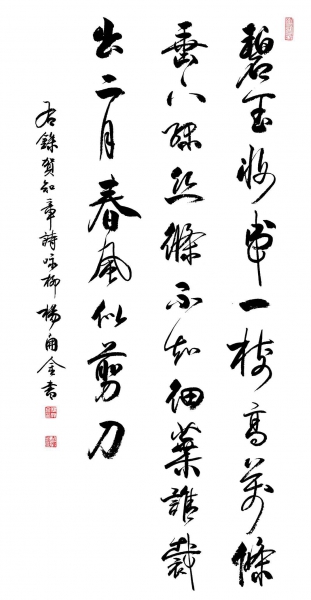 碧玉妝成一樹高萬條
垂下綠絲絛不知細葉誰裁
出二月春風似剪刀
右錄賀知章詩咏柳楊金書